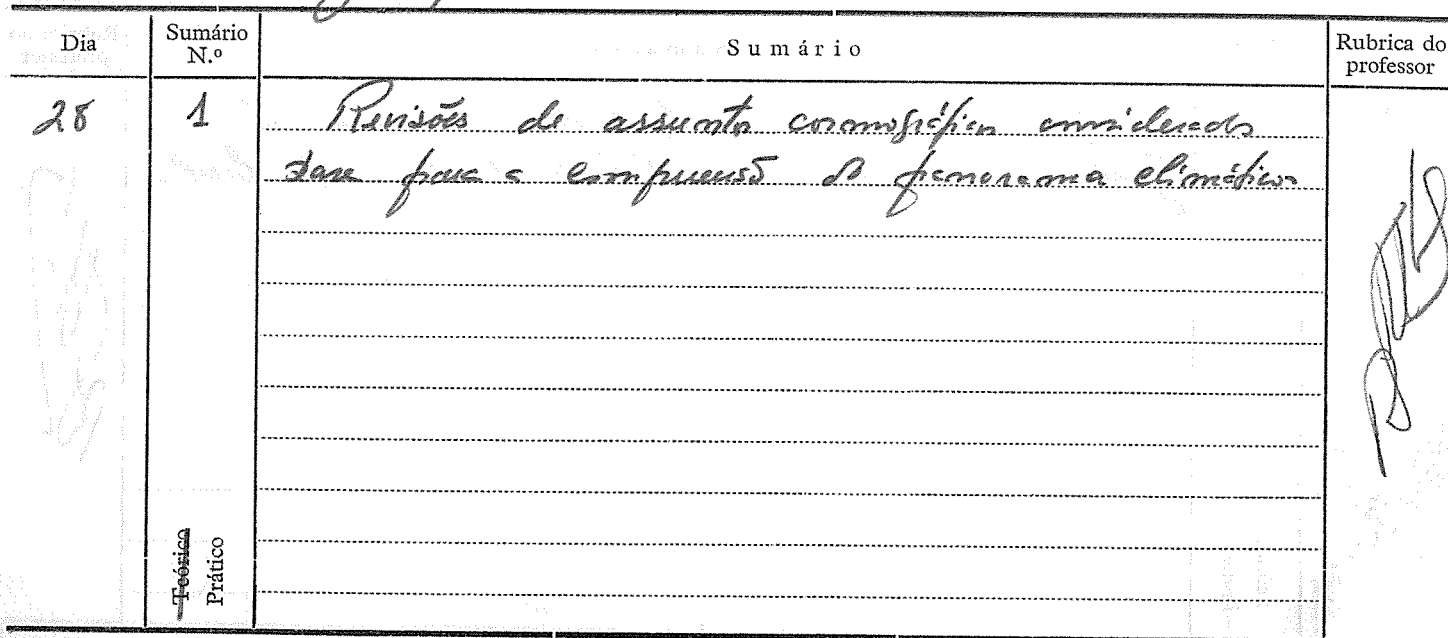 Dia
Sumário
N.º
Sumário
Rubrica do
professor
28
1
Revisões de assunto cosmográfico considerado
base para a compreensão do panorama climático
Teórico
Prático